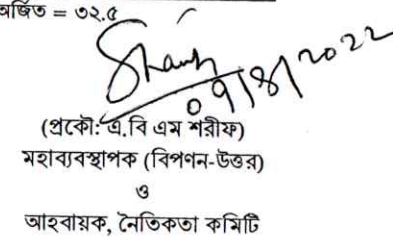 অর্জিত = ৩২.৫
09/8/2022
(প্রকৌ: এ.বি এম শরীফ)
মহাব্যবস্থাপক (বিপণন-উত্তর)
ও
আহবায়ক, নৈতিকতা কমিটি